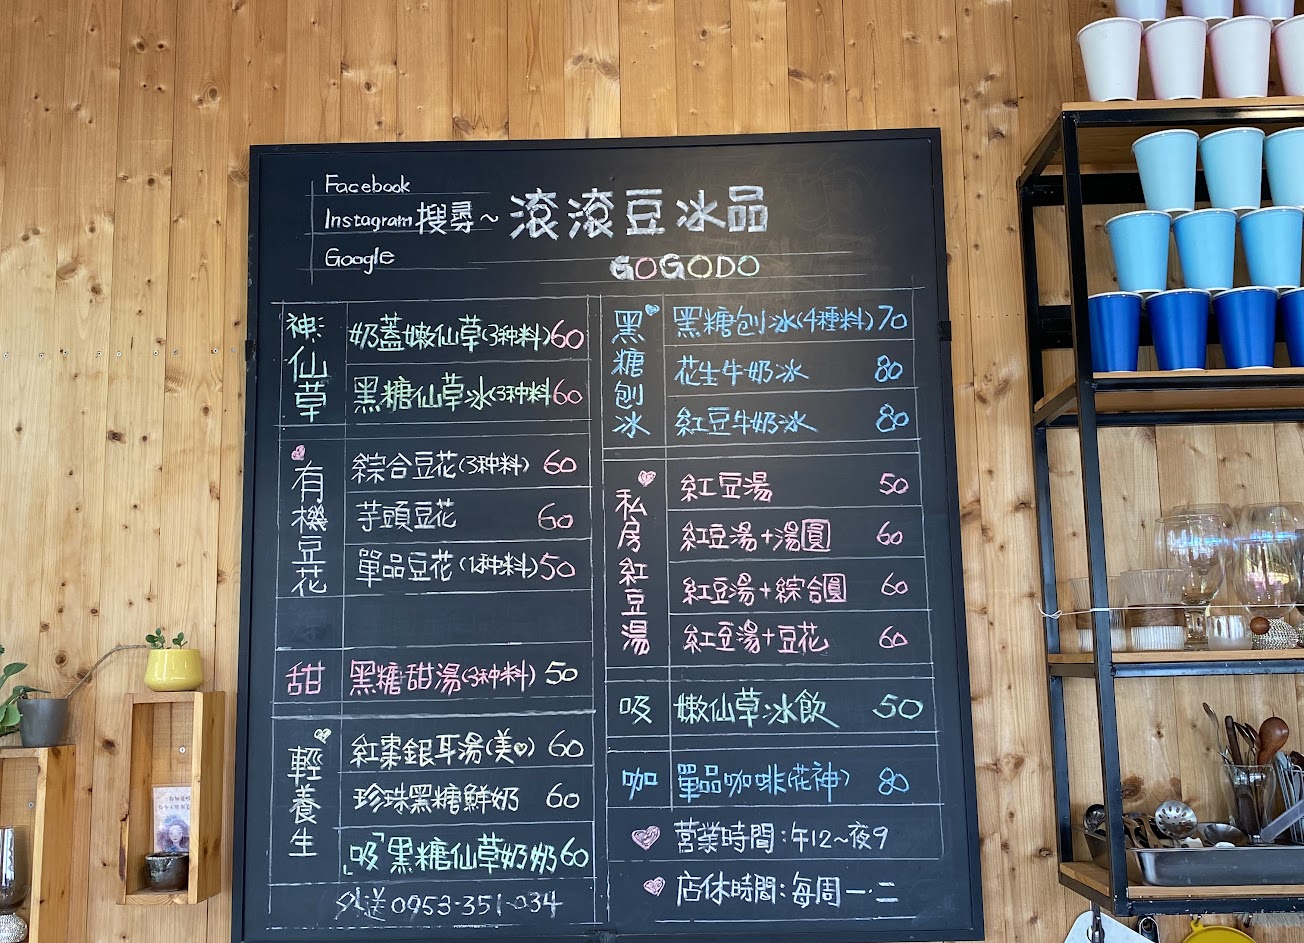 Facebook
Instagram 搜尋~
Google
滾滾豆冰品
GOGODO
神仙草
奶蓋嫩仙草(3种料) 60
黑糖仙草冰(3种料 60
有機豆花
綜合豆花(3种料) 60
芋頭豆花 60
單品豆花(1种料) 50
甜
黑糖甜湯(3种料) 50
輕養生
紅棗銀耳湯(美♡) 60
珍珠黑糖鮮奶 60
「吸」黑糖仙草奶奶 60
外送 0953-351-034
黑糖刨冰
黑糖刨冰(4種料) 70
花生牛奶冰 80
紅豆牛奶冰 80
私房紅豆湯
紅豆湯 50
紅豆湯+湯圓 60
紅豆湯+綜合圓 60
紅豆湯+豆花 60
吸
嫩仙草冰飲 50
咖
單品咖啡(花神) 80
營業時間:午12~夜9
店休時間:每周一.二